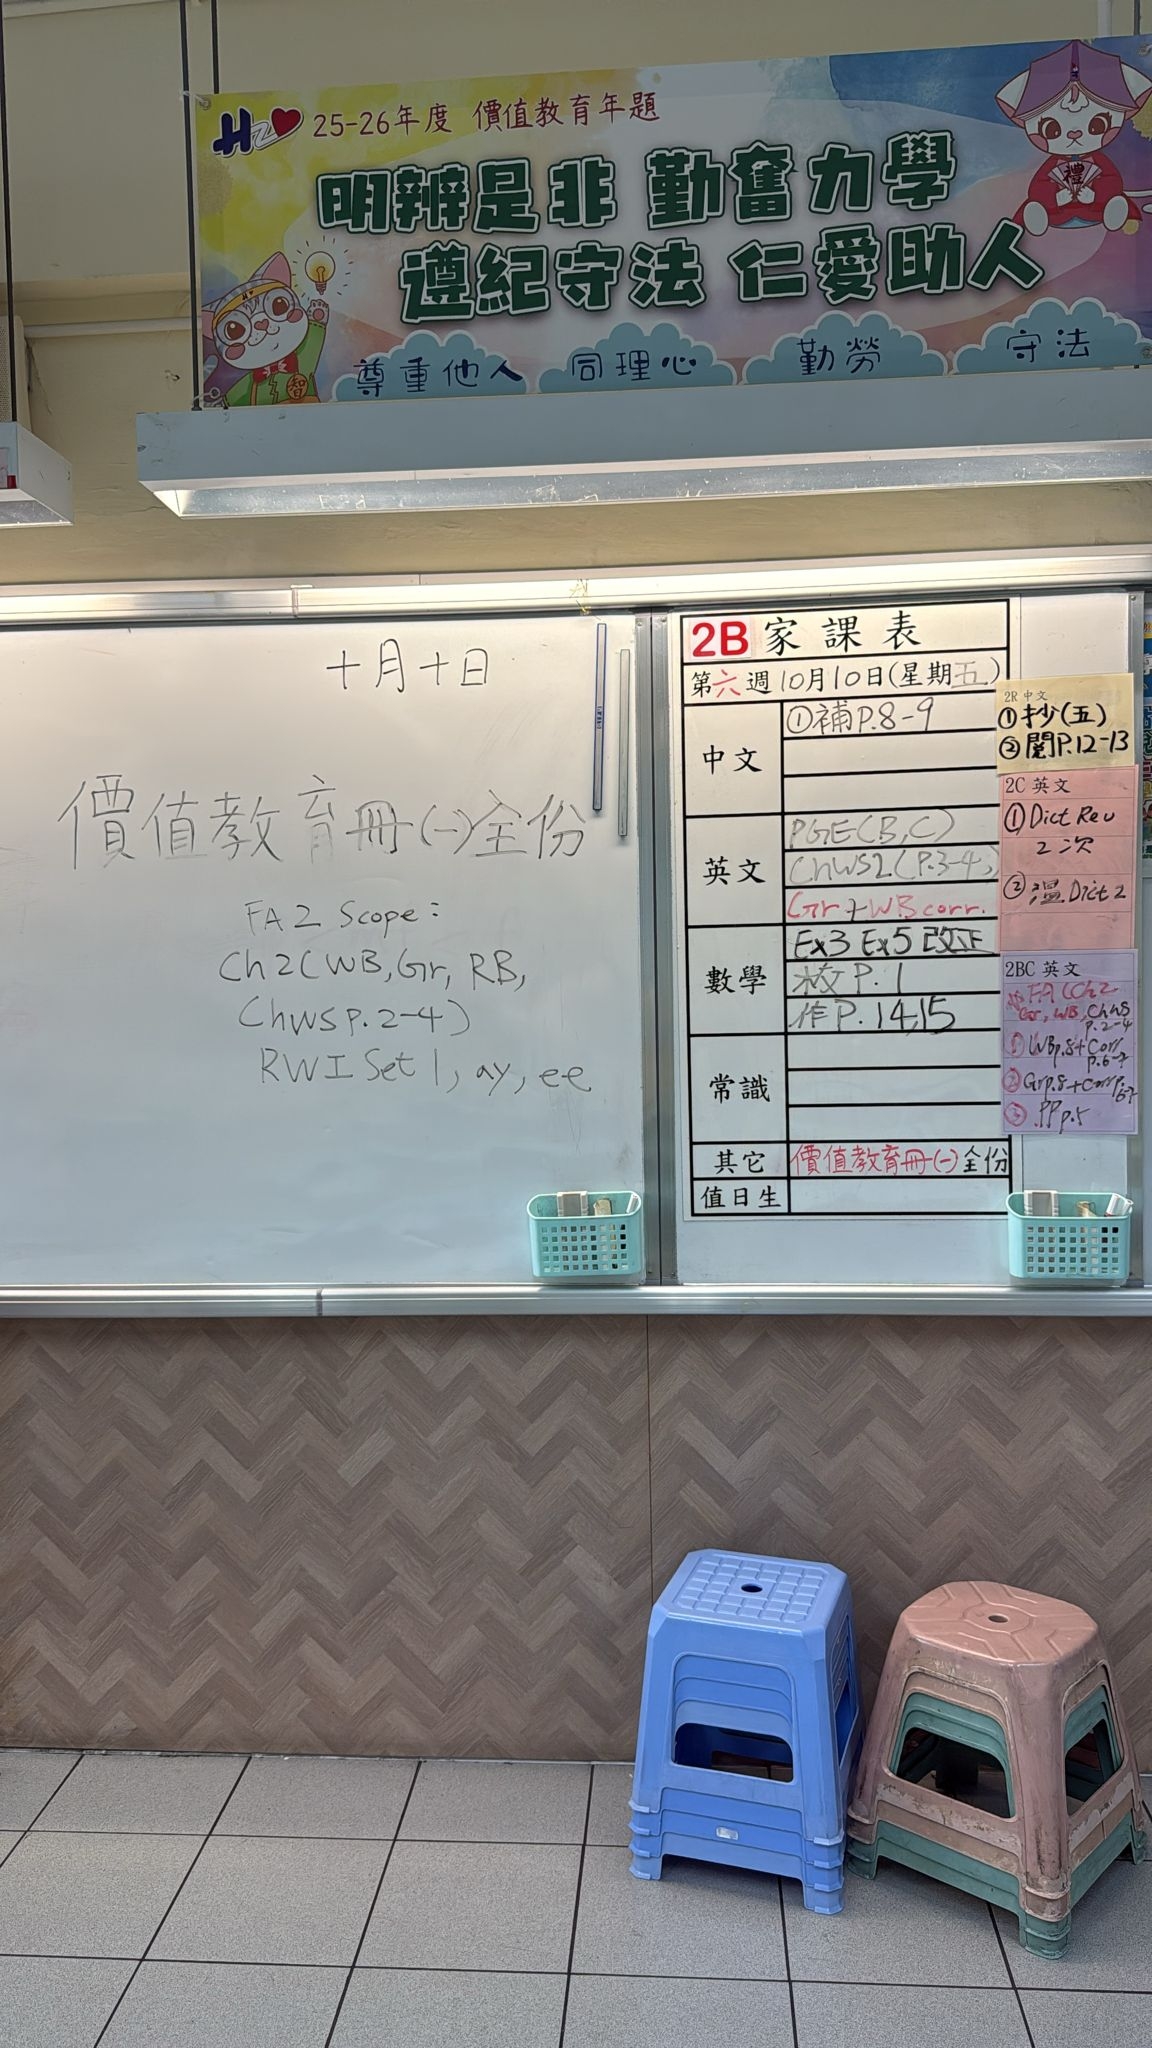 25-26年度 價值教育年題
明辨是非 勤奮力學
遵紀守法 仁愛助人
禮
智
尊重他人 同理心 勤勞 守法
十月十日
價值教育冊(一)全份
FA2 Scope:
Ch2(WB, Gr, RB,
ChWS p.2-4)
RWI Set 1, ay, ee
2B 家課表
第六週10月10日(星期五)
中文
①補P.8-9
英文
PGE(B,C)
ChWS2(P.3-4)
Gr+WB corr.
數學
Ex3 Ex5 改正
P.1
作P.14,15
常識
其它
價值教育冊(一)全份
值日生
2R 中文
①抄(五)
②閱P.12-13
2C 英文
①Dict Rev
2次
②溫Dict 2
2BC 英文
FA (Ch2
Gr, WB, ChWS
p.2-4
①WBp.8+Corr
p.6-7
②Grp.8+Corrp.
6-7
③PPp.5